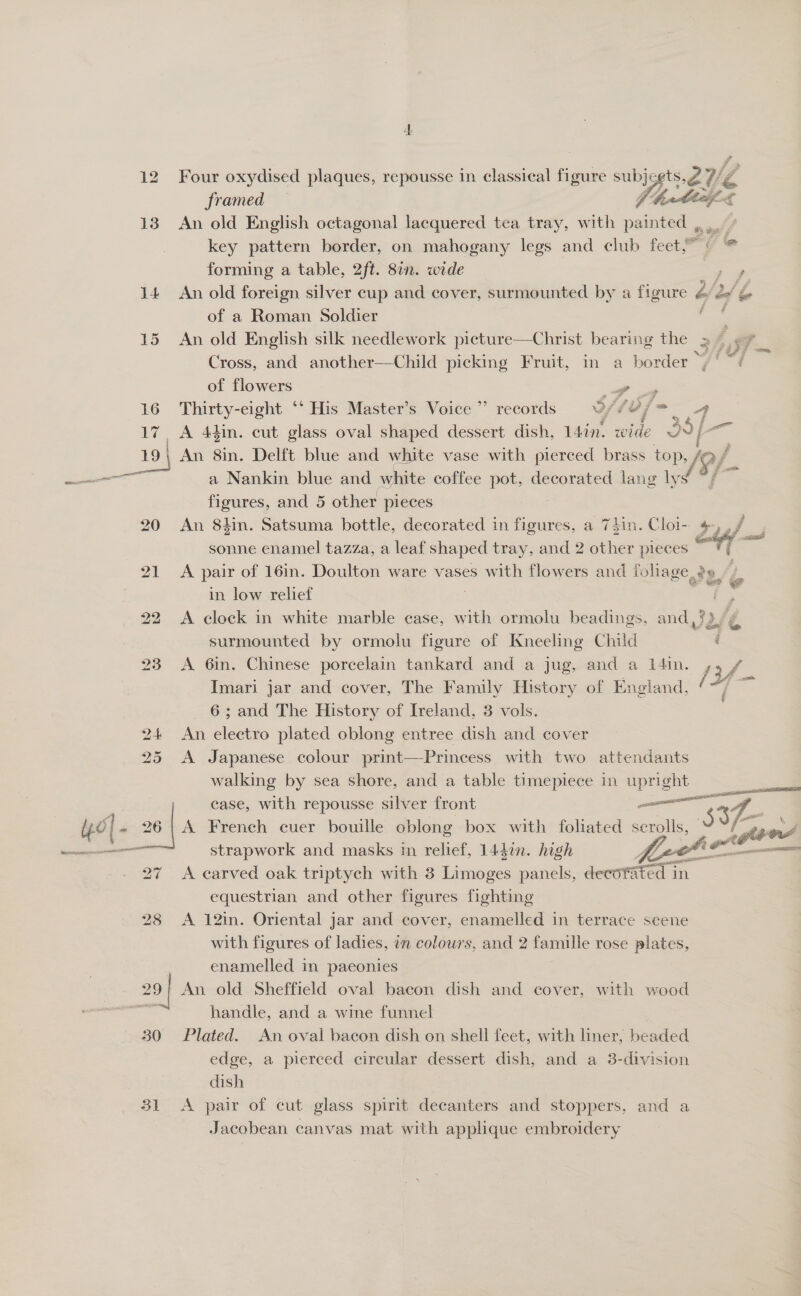 4
12 Four oxydised plaques, repousse in classical figure subjects, 27/6
framed
13 An old English octagonal lacquered tea tray, with painted
key pattern border, on mahogany legs and club feet,
forming a table, 2ft. 8in. wide
14 An old foreign silver cup and cover, surmounted by a figure
of a Roman Soldier
15 An old English silk needlework picture—Christ bearing the
Cross, and another—Child picking Fruit, in a border
of flowers
16 Thirty-eight “ His Master’s Voice ” records
17 A 4½in. cut glass oval shaped dessert dish, 14in. wide
19 An 8in. Delft blue and white vase with pierced brass top,
a Nankin blue and white coffee pot, decorated lang lys
figures, and 5 other pieces
20 An 8½in. Satsuma bottle, decorated in figures, a 7½in. Cloi-
sonne enamel tazza, a leaf shaped tray, and 2 other pieces
21 A pair of 16in. Doulton ware vases with flowers and foliage
in low relief
22 A clock in white marble case, with ormolu beadings, and
surmounted by ormolu figure of Kneeling Child
23 A 6in. Chinese porcelain tankard and a jug, and a 14in.
Imari jar and cover, The Family History of England,
6 ; and The History of Ireland, 3 vols.
24 An electro plated oblong entree dish and cover
25 A Japanese colour print—Princess with two attendants
walking by sea shore, and a table timepiece in upright
case, with repousse silver front
40/- 26 A French cuer bouille oblong box with foliated scrolls,
strapwork and masks in relief, 14½in. high
27 A carved oak triptych with 3 Limoges panels, decorated in
equestrian and other figures fighting
28 A 12in. Oriental jar and cover, enamelled in terrace scene
with figures of ladies, in colours, and 2 famille rose plates,
enamelled in paeonies
29 An old Sheffield oval bacon dish and cover, with wood
handle, and a wine funnel
30 Plated. An oval bacon dish on shell feet, with liner, beaded
edge, a pierced circular dessert dish, and a 3-division
dish
31 A pair of cut glass spirit decanters and stoppers, and a
Jacobean canvas mat with applique embroidery